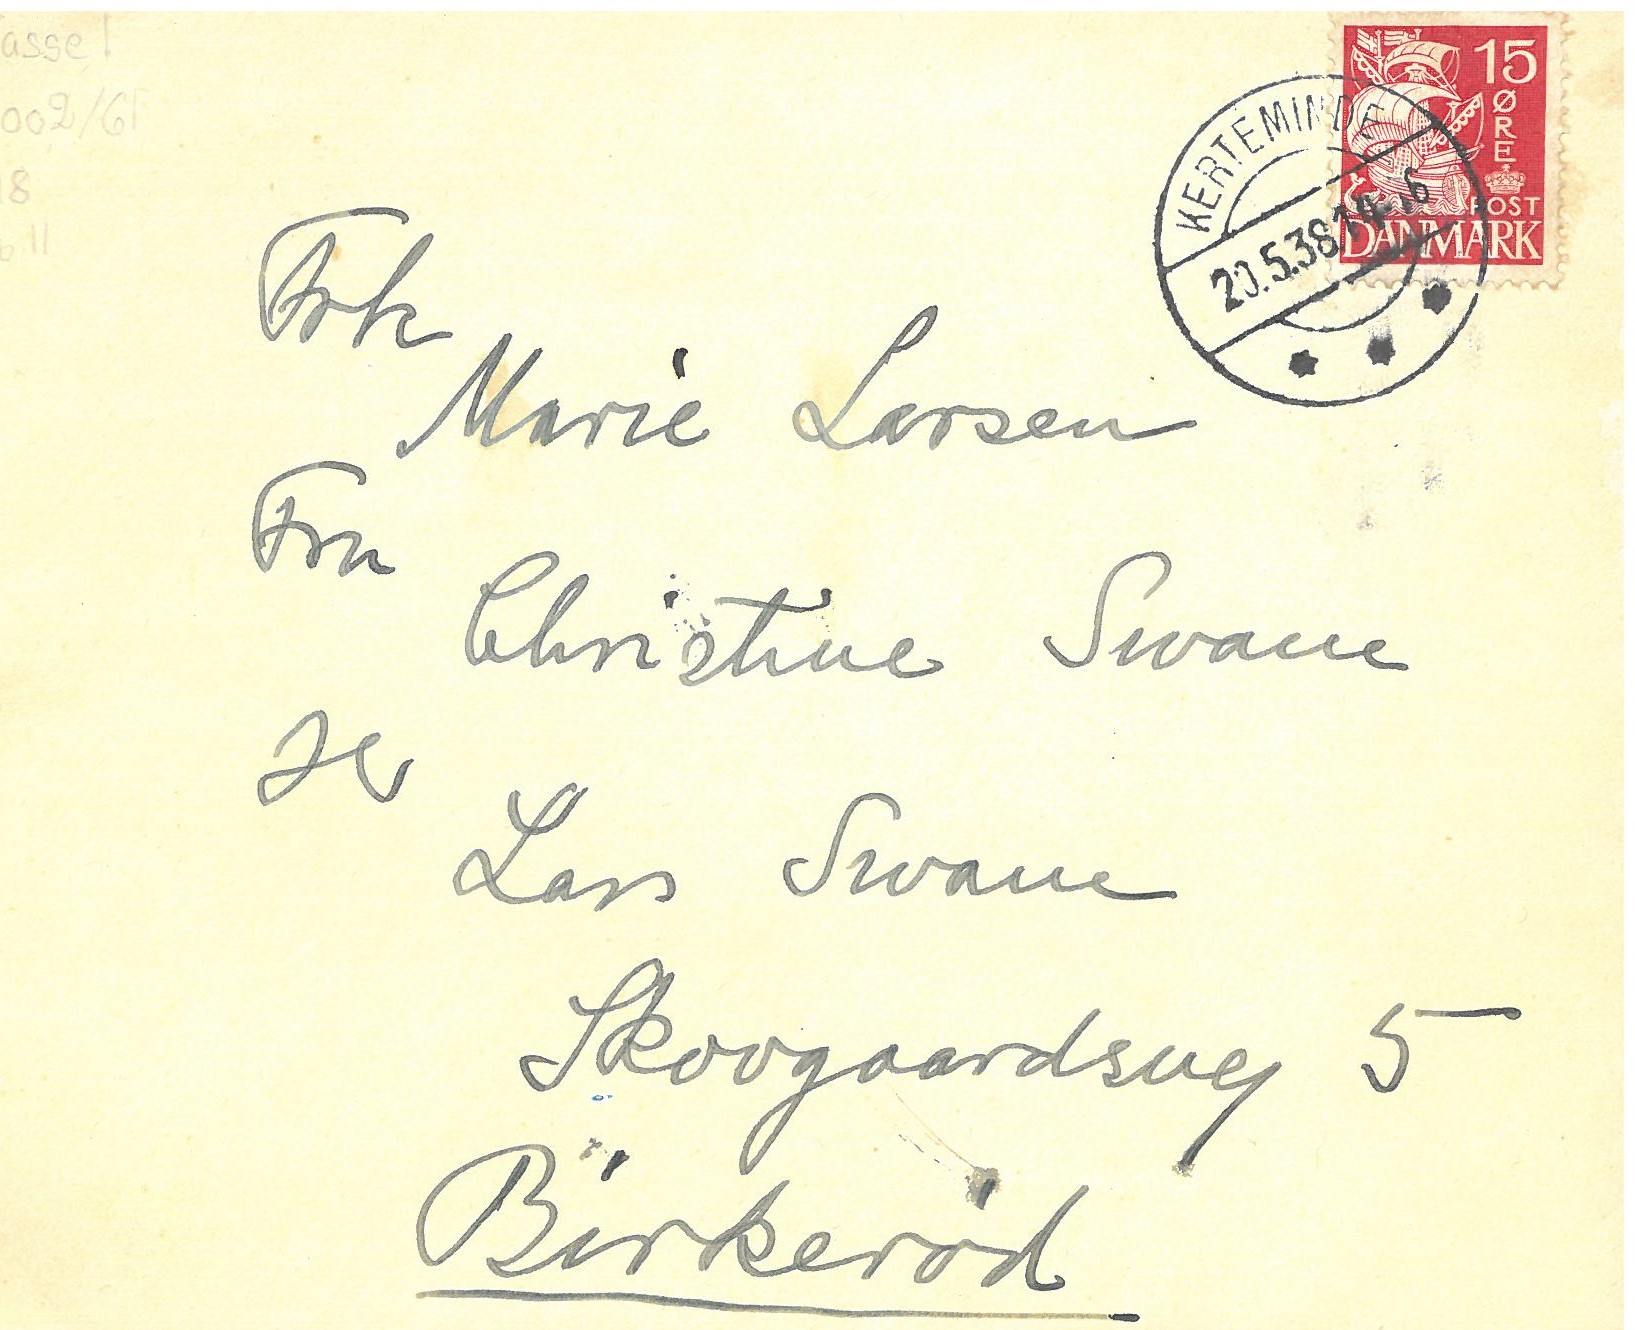 asse!
002/61
18
.11
15
ØRE
POST
DANMARK
KERTEMINDE
20.5.38
Frk
Marie Larsen
Fru
Christine Swane
Hr
Lars Swane
Skovgaardsvej 5
Birkerød